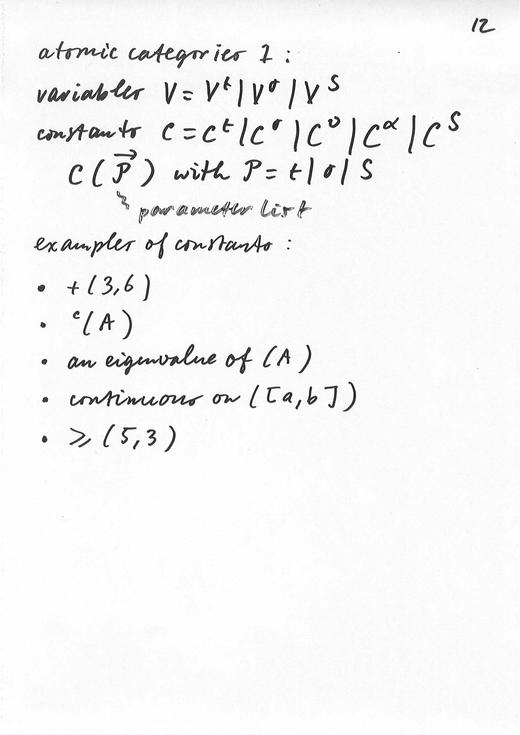 12
atomic categories 1 :
variables V = Vᵗ | V^σ | V^S
constants C = Cᵗ | C^σ | C^ν | C^α | C^S
C ( P⃗ ) with P = t | σ | S
parameter list
examples of constants :
• + ( 3, 6 )
• ᶜ( A )
• an eigenvalue of ( A )
• continuous on ( [ a, b ] )
• ⩾ ( 5, 3 )